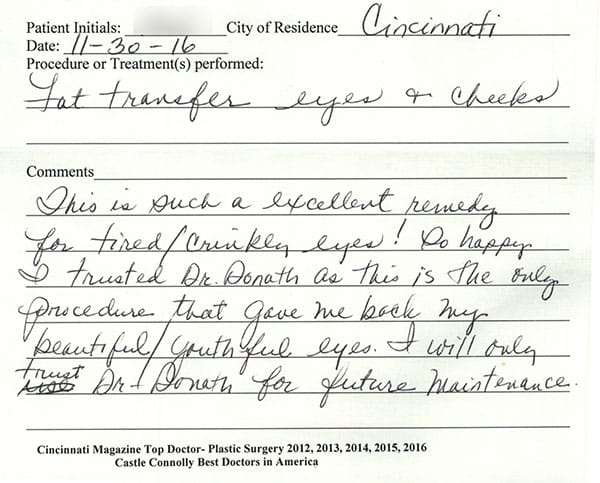 Patient Initials: City of Residence Cincinnati
Date: 11-30-16
Procedure or Treatment(s) performed:
Fat transfer eyes & cheeks
Comments
This is such a excellent remedy
for tired/crinkly eyes! So happy
I trusted Dr. Donath as this is the only
procedure that gave me back my
beautiful/youthful eyes. I will only
trust Dr. Donath for future maintenance.
Cincinnati Magazine Top Doctor- Plastic Surgery 2012, 2013, 2014, 2015, 2016
Castle Connolly Best Doctors in America